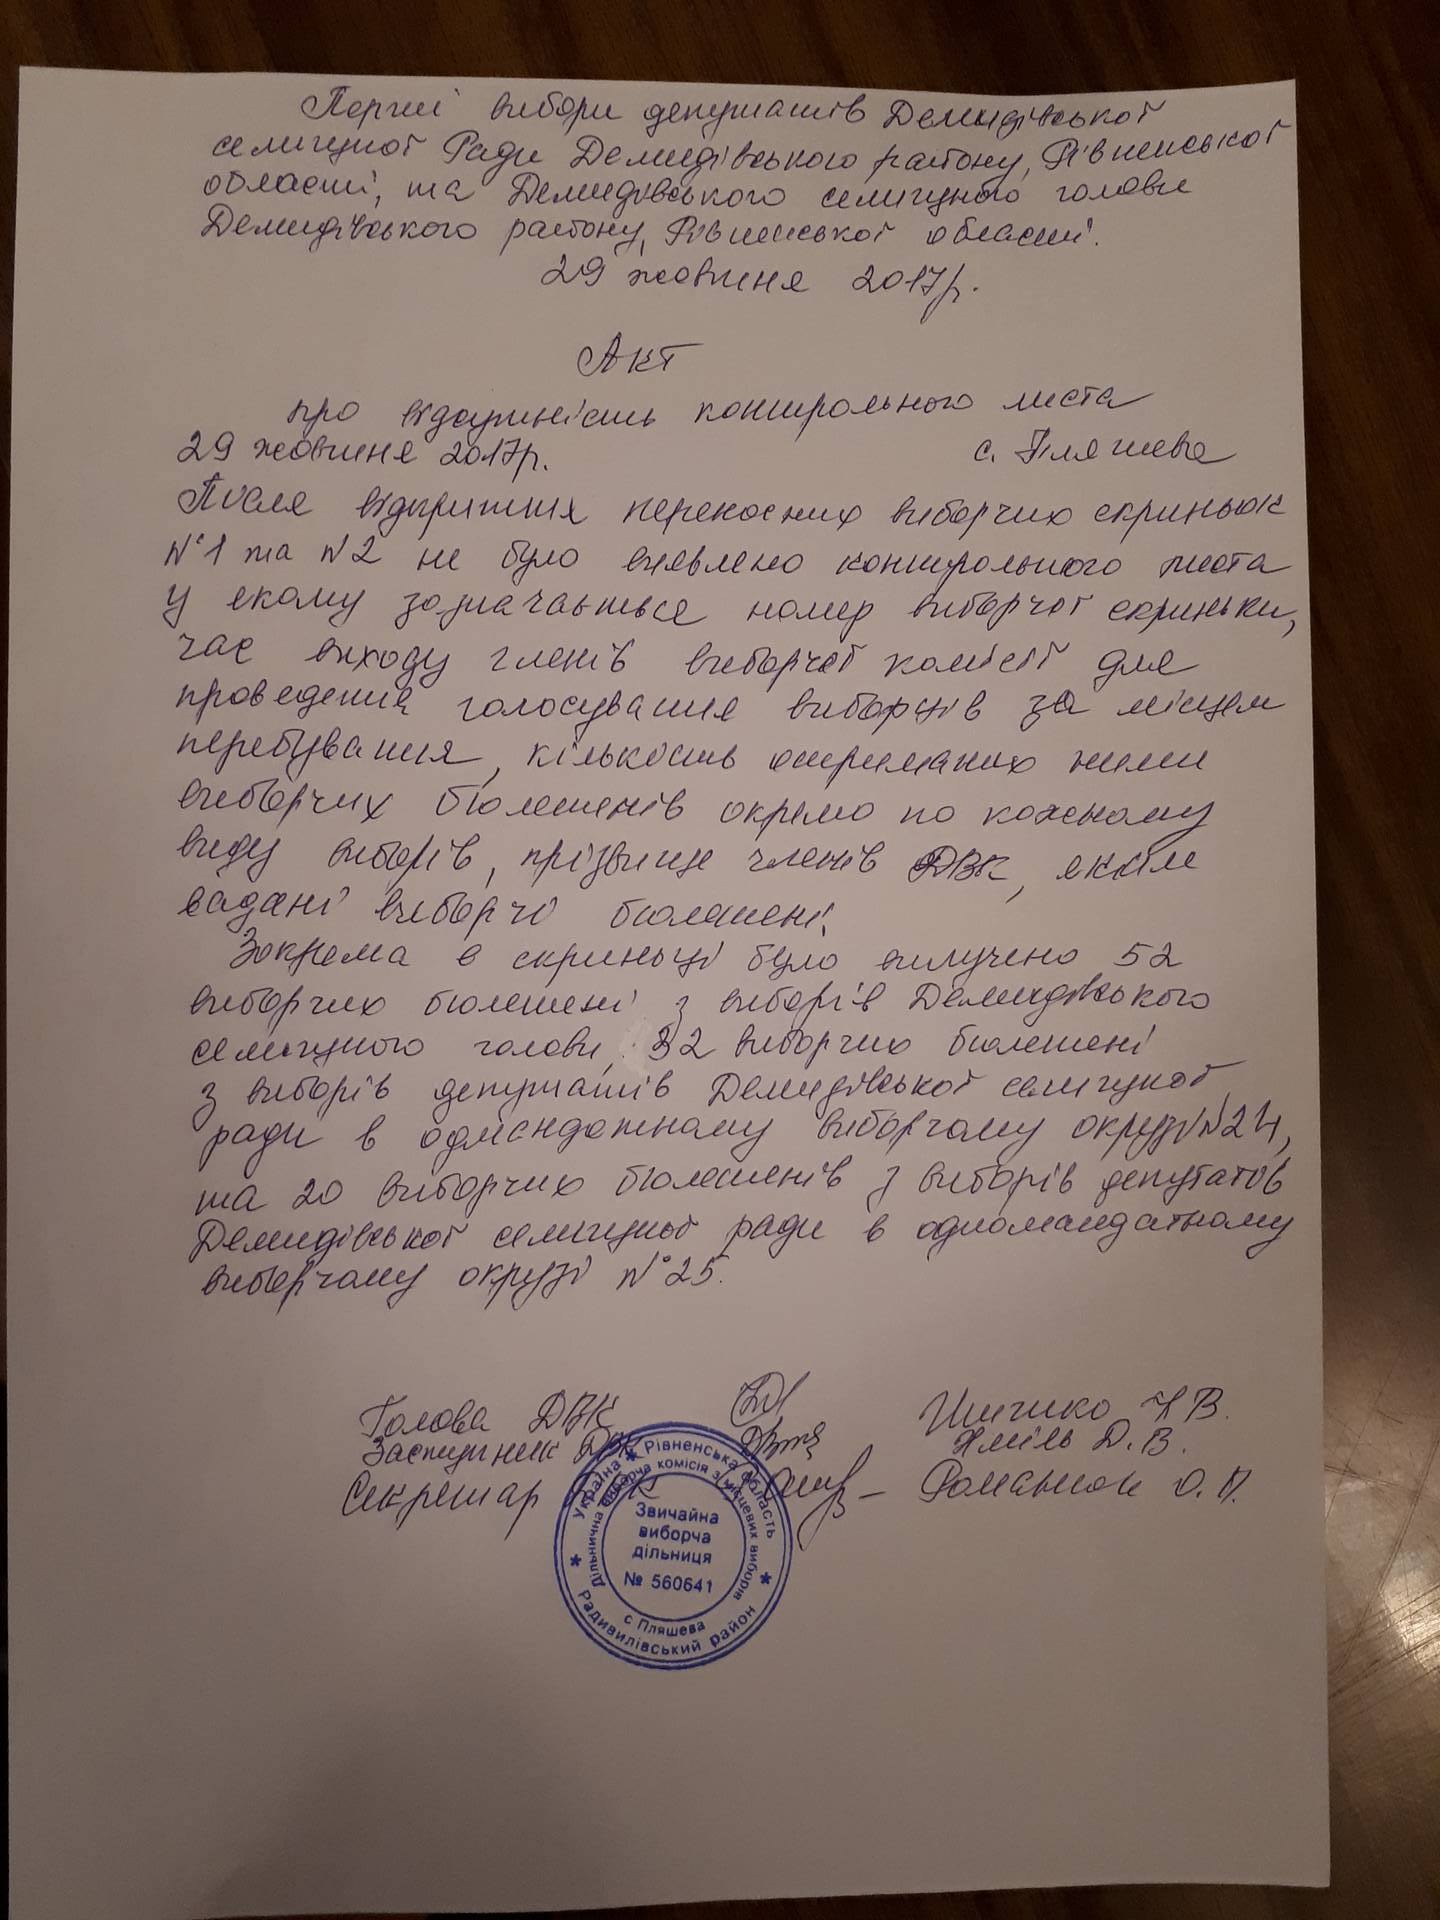 Перші вибори депутатів Демидівської
селищної Ради Демидівського району, Рівненської
області, та Демидівського селищного голови
Демидівського району, Рівненської області.
29 жовтня 2017р.
Акт
про відсутність контрольного листа
29 жовтня 2017р. с. Пляшева
Після відкриття переносних виборчих скриньок
№1 та №2 не було виявлено контрольного листа
у якому зазначається номер виборчої скриньки,
час виходу членів виборчої комісії для
проведення голосування виборців за місцем
перебування, кількість отриманих ними
виборчих бюлетенів окремо по кожному
виду виборів, прізвище членів ДВК, яким
видані виборчі бюлетені.
Зокрема в скриньці було вилучено 52
виборчих бюлетені з виборів Демидівського
селищного голови, 32 виборчих бюлетені
з виборів депутатів Демидівської селищної
ради в одномандатному виборчому окрузі №24,
та 20 виборчих бюлетенів з виборів депутатів
Демидівської селищної ради в одномандатному
виборчому окрузі №25.
Голова ДВК Шишко Н В.
Заступник ДВК Хміль Д. В.
Секретар ДВК Романюк О. П.
Україна * Рівненська область
Дільнична виборча комісія з місцевих виборів
Звичайна
виборча
дільниця
№ 560641
с Пляшева
* Радивилівський район *